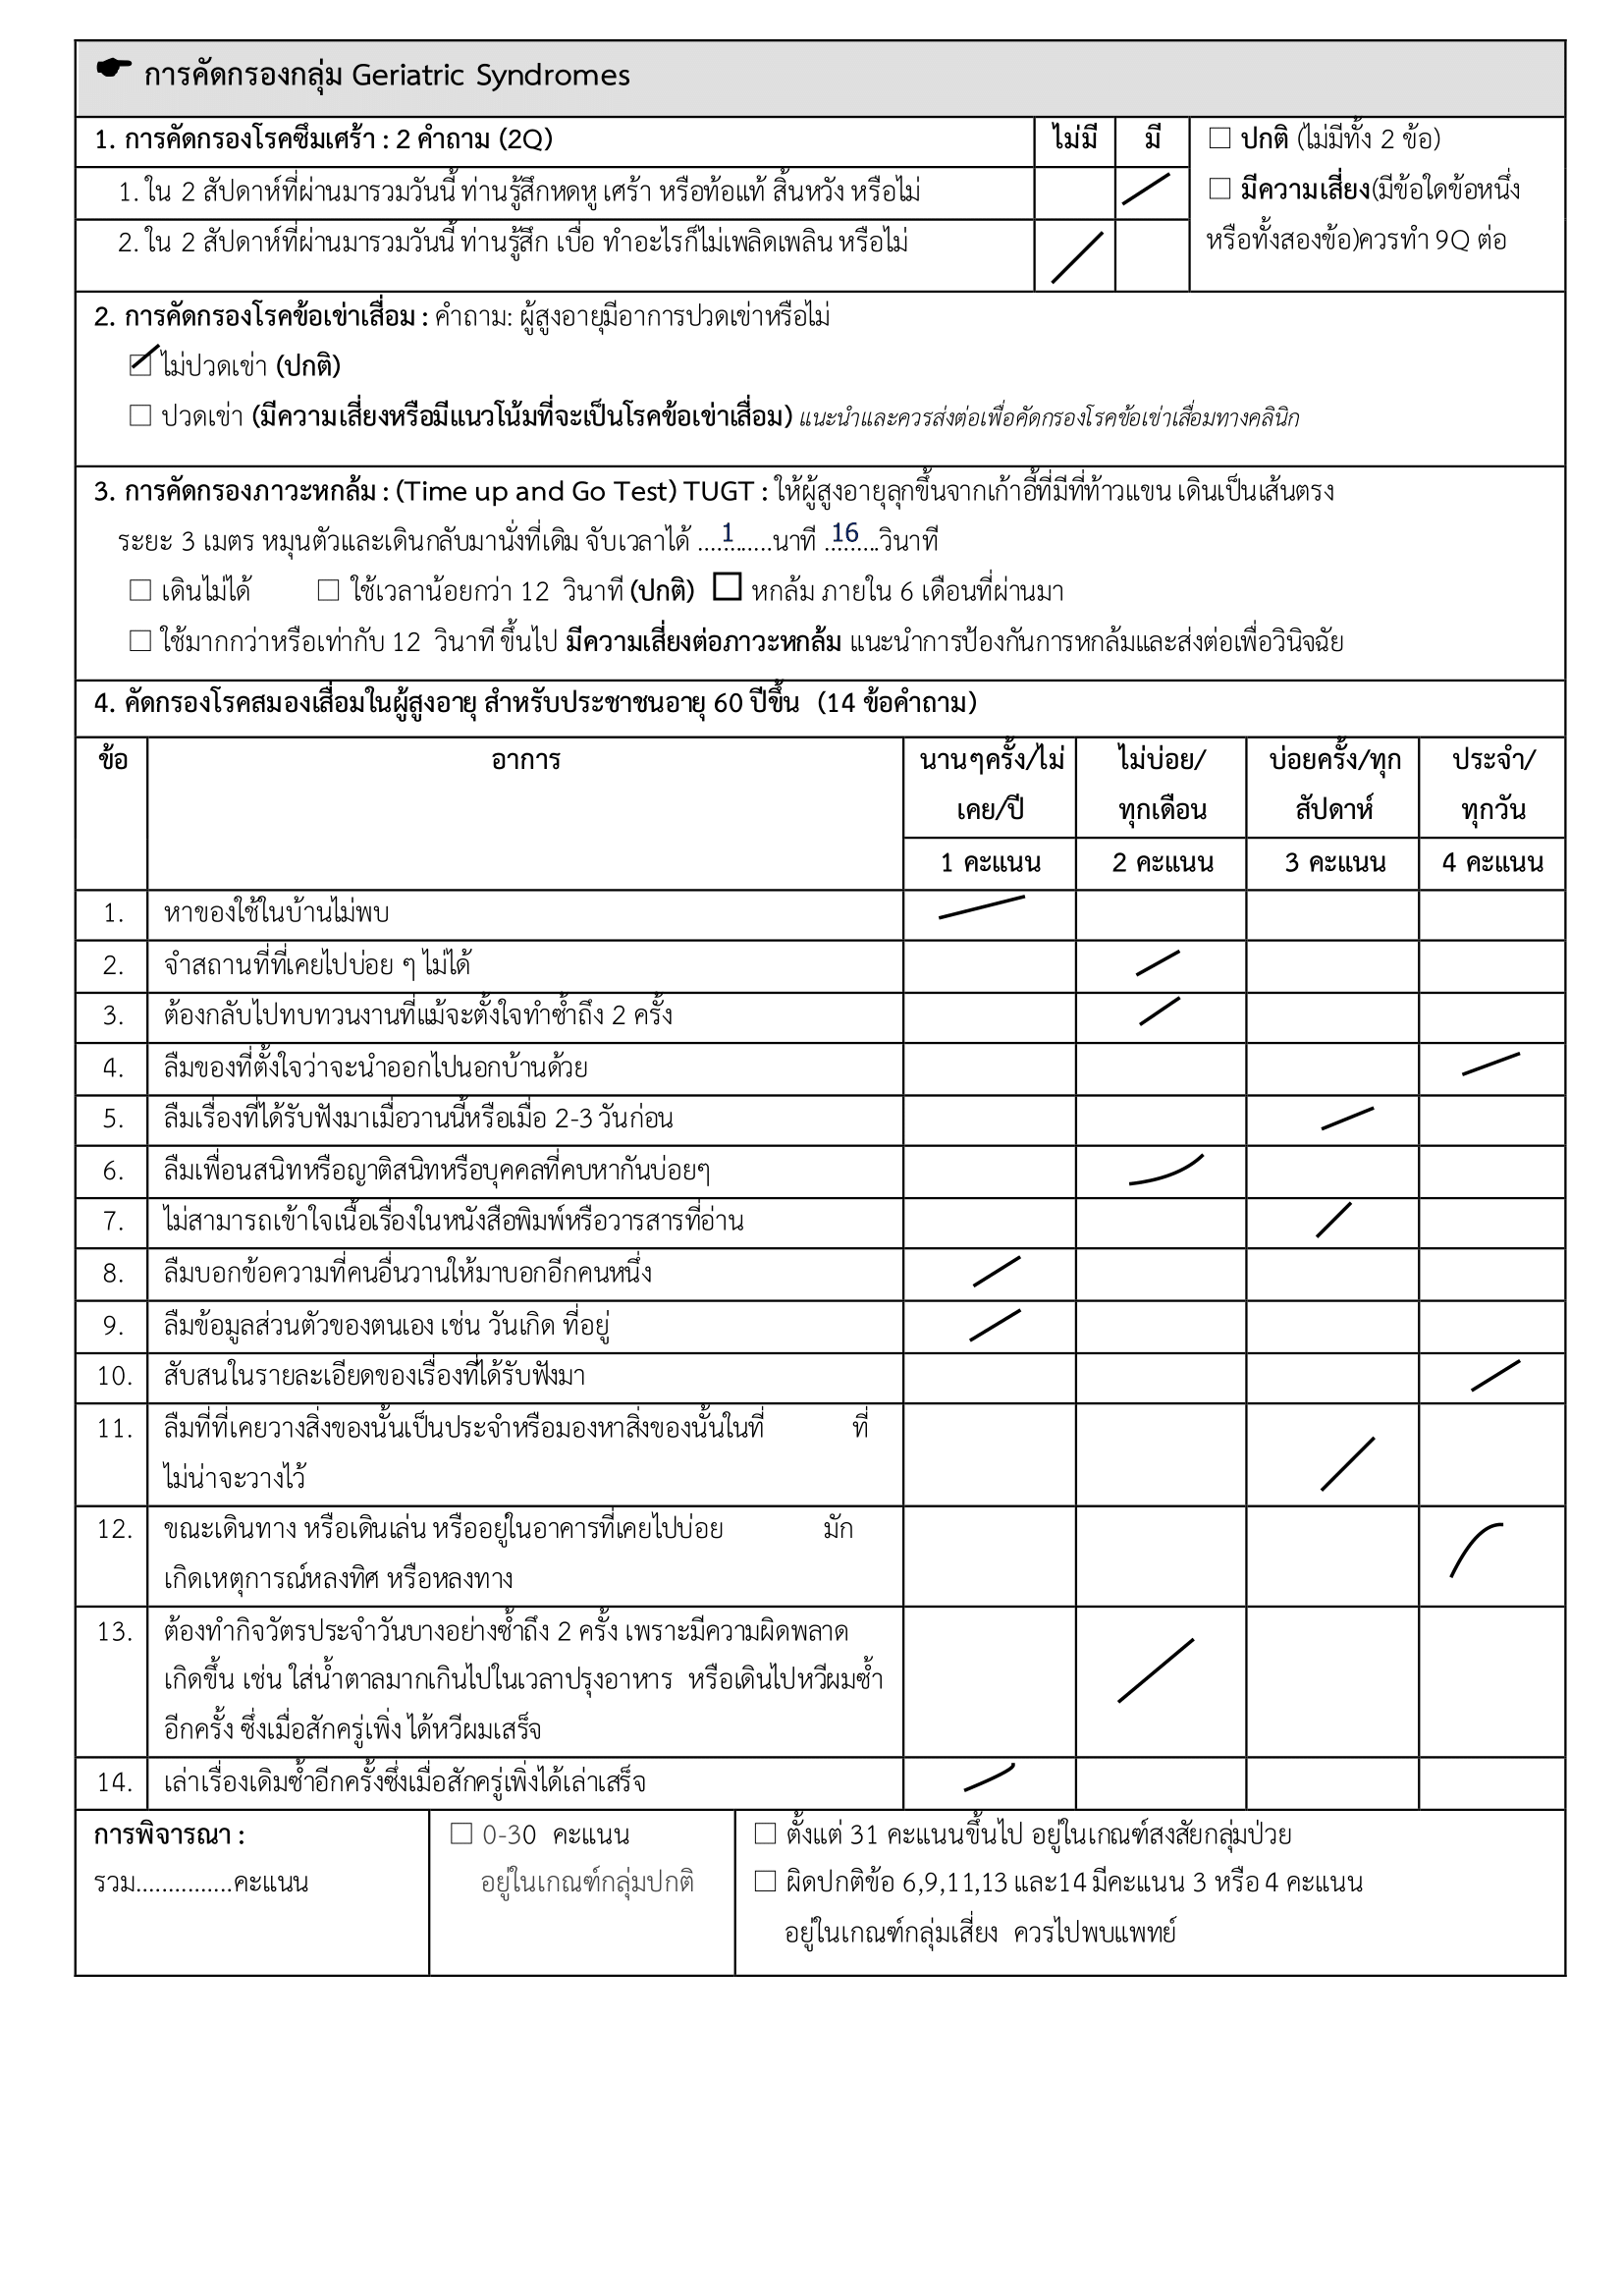 การคัดกรองกลุ่ม Geriatric Syndromes
1. การคัดกรองโรคซึมเศร้า : 2 คำถาม (2Q) ไม่มี มี ☐ ปกติ (ไม่มีทั้ง 2 ข้อ)
1. ใน 2 สัปดาห์ที่ผ่านมารวมวันนี้ ท่านรู้สึกหดหู่ เศร้า หรือท้อแท้ สิ้นหวัง หรือไม่ ☐ มีความเสี่ยง(มีข้อใดข้อหนึ่ง
2. ใน 2 สัปดาห์ที่ผ่านมารวมวันนี้ ท่านรู้สึก เบื่อ ทำอะไรก็ไม่เพลิดเพลิน หรือไม่ หรือทั้งสองข้อ)ควรทำ 9Q ต่อ
2. การคัดกรองโรคข้อเข่าเสื่อม : คำถาม: ผู้สูงอายุมีอาการปวดเข่าหรือไม่
☑ ไม่ปวดเข่า (ปกติ)
☐ ปวดเข่า (มีความเสี่ยงหรือมีแนวโน้มที่จะเป็นโรคข้อเข่าเสื่อม) แนะนำและควรส่งต่อเพื่อคัดกรองโรคข้อเข่าเสื่อมทางคลินิก
3. การคัดกรองภาวะหกล้ม : (Time up and Go Test) TUGT : ให้ผู้สูงอายุลุกขึ้นจากเก้าอี้ที่มีที่ท้าวแขน เดินเป็นเส้นตรง
ระยะ 3 เมตร หมุนตัวและเดินกลับมานั่งที่เดิม จับเวลาได้ ....1.....นาที ..16...วินาที
☐ เดินไม่ได้ ☐ ใช้เวลาน้อยกว่า 12 วินาที (ปกติ) ☐ หกล้ม ภายใน 6 เดือนที่ผ่านมา
☐ ใช้มากกว่าหรือเท่ากับ 12 วินาที ขึ้นไป มีความเสี่ยงต่อภาวะหกล้ม แนะนำการป้องกันการหกล้มและส่งต่อเพื่อวินิจฉัย
4. คัดกรองโรคสมองเสื่อมในผู้สูงอายุ สำหรับประชาชนอายุ 60 ปีขึ้น (14 ข้อคำถาม)
ข้อ อาการ นานๆครั้ง/ไม่ ไม่บ่อย/ บ่อยครั้ง/ทุก ประจำ/
เคย/ปี ทุกเดือน สัปดาห์ ทุกวัน
1 คะแนน 2 คะแนน 3 คะแนน 4 คะแนน
1. หาของใช้ในบ้านไม่พบ
2. จำสถานที่ที่เคยไปบ่อย ๆ ไม่ได้
3. ต้องกลับไปทบทวนงานที่แม้จะตั้งใจทำซ้ำถึง 2 ครั้ง
4. ลืมของที่ตั้งใจว่าจะนำออกไปนอกบ้านด้วย
5. ลืมเรื่องที่ได้รับฟังมาเมื่อวานนี้หรือเมื่อ 2-3 วันก่อน
6. ลืมเพื่อนสนิทหรือญาติสนิทหรือบุคคลที่คบหากันบ่อยๆ
7. ไม่สามารถเข้าใจเนื้อเรื่องในหนังสือพิมพ์หรือวารสารที่อ่าน
8. ลืมบอกข้อความที่คนอื่นวานให้มาบอกอีกคนหนึ่ง
9. ลืมข้อมูลส่วนตัวของตนเอง เช่น วันเกิด ที่อยู่
10. สับสนในรายละเอียดของเรื่องที่ได้รับฟังมา
11. ลืมที่ที่เคยวางสิ่งของนั้นเป็นประจำหรือมองหาสิ่งของนั้นในที่ ที่
ไม่น่าจะวางไว้
12. ขณะเดินทาง หรือเดินเล่น หรืออยู่ในอาคารที่เคยไปบ่อย มัก
เกิดเหตุการณ์หลงทิศ หรือหลงทาง
13. ต้องทำกิจวัตรประจำวันบางอย่างซ้ำถึง 2 ครั้ง เพราะมีความผิดพลาด
เกิดขึ้น เช่น ใส่น้ำตาลมากเกินไปในเวลาปรุงอาหาร หรือเดินไปหวีผมซ้ำ
อีกครั้ง ซึ่งเมื่อสักครู่เพิ่ง ได้หวีผมเสร็จ
14. เล่าเรื่องเดิมซ้ำอีกครั้งซึ่งเมื่อสักครู่เพิ่งได้เล่าเสร็จ
การพิจารณา : ☐ 0-30 คะแนน ☐ ตั้งแต่ 31 คะแนนขึ้นไป อยู่ในเกณฑ์สงสัยกลุ่มป่วย
รวม...............คะแนน อยู่ในเกณฑ์กลุ่มปกติ ☐ ผิดปกติข้อ 6,9,11,13 และ14 มีคะแนน 3 หรือ 4 คะแนน
อยู่ในเกณฑ์กลุ่มเสี่ยง ควรไปพบแพทย์